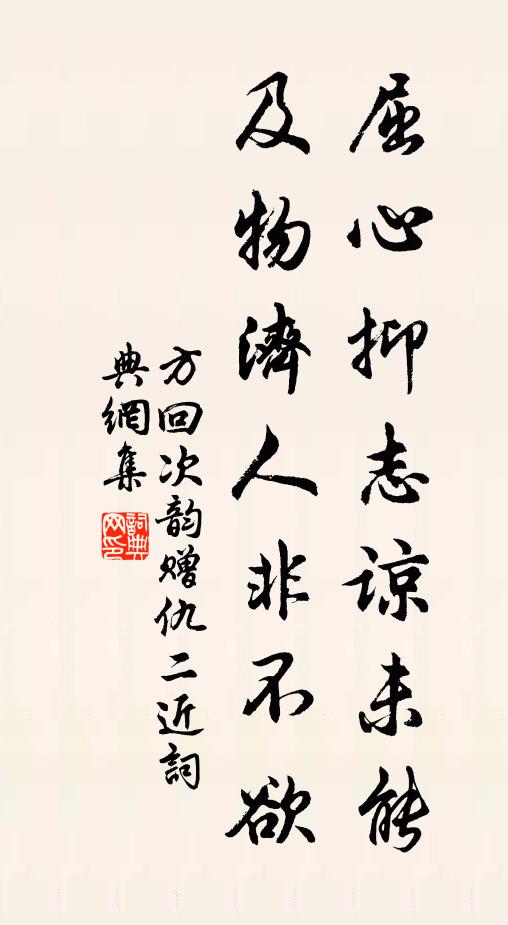 屈心抑志諒未能
及物濟人非不欲
方回次韵贈仇二近詞
典網集
詞典網印